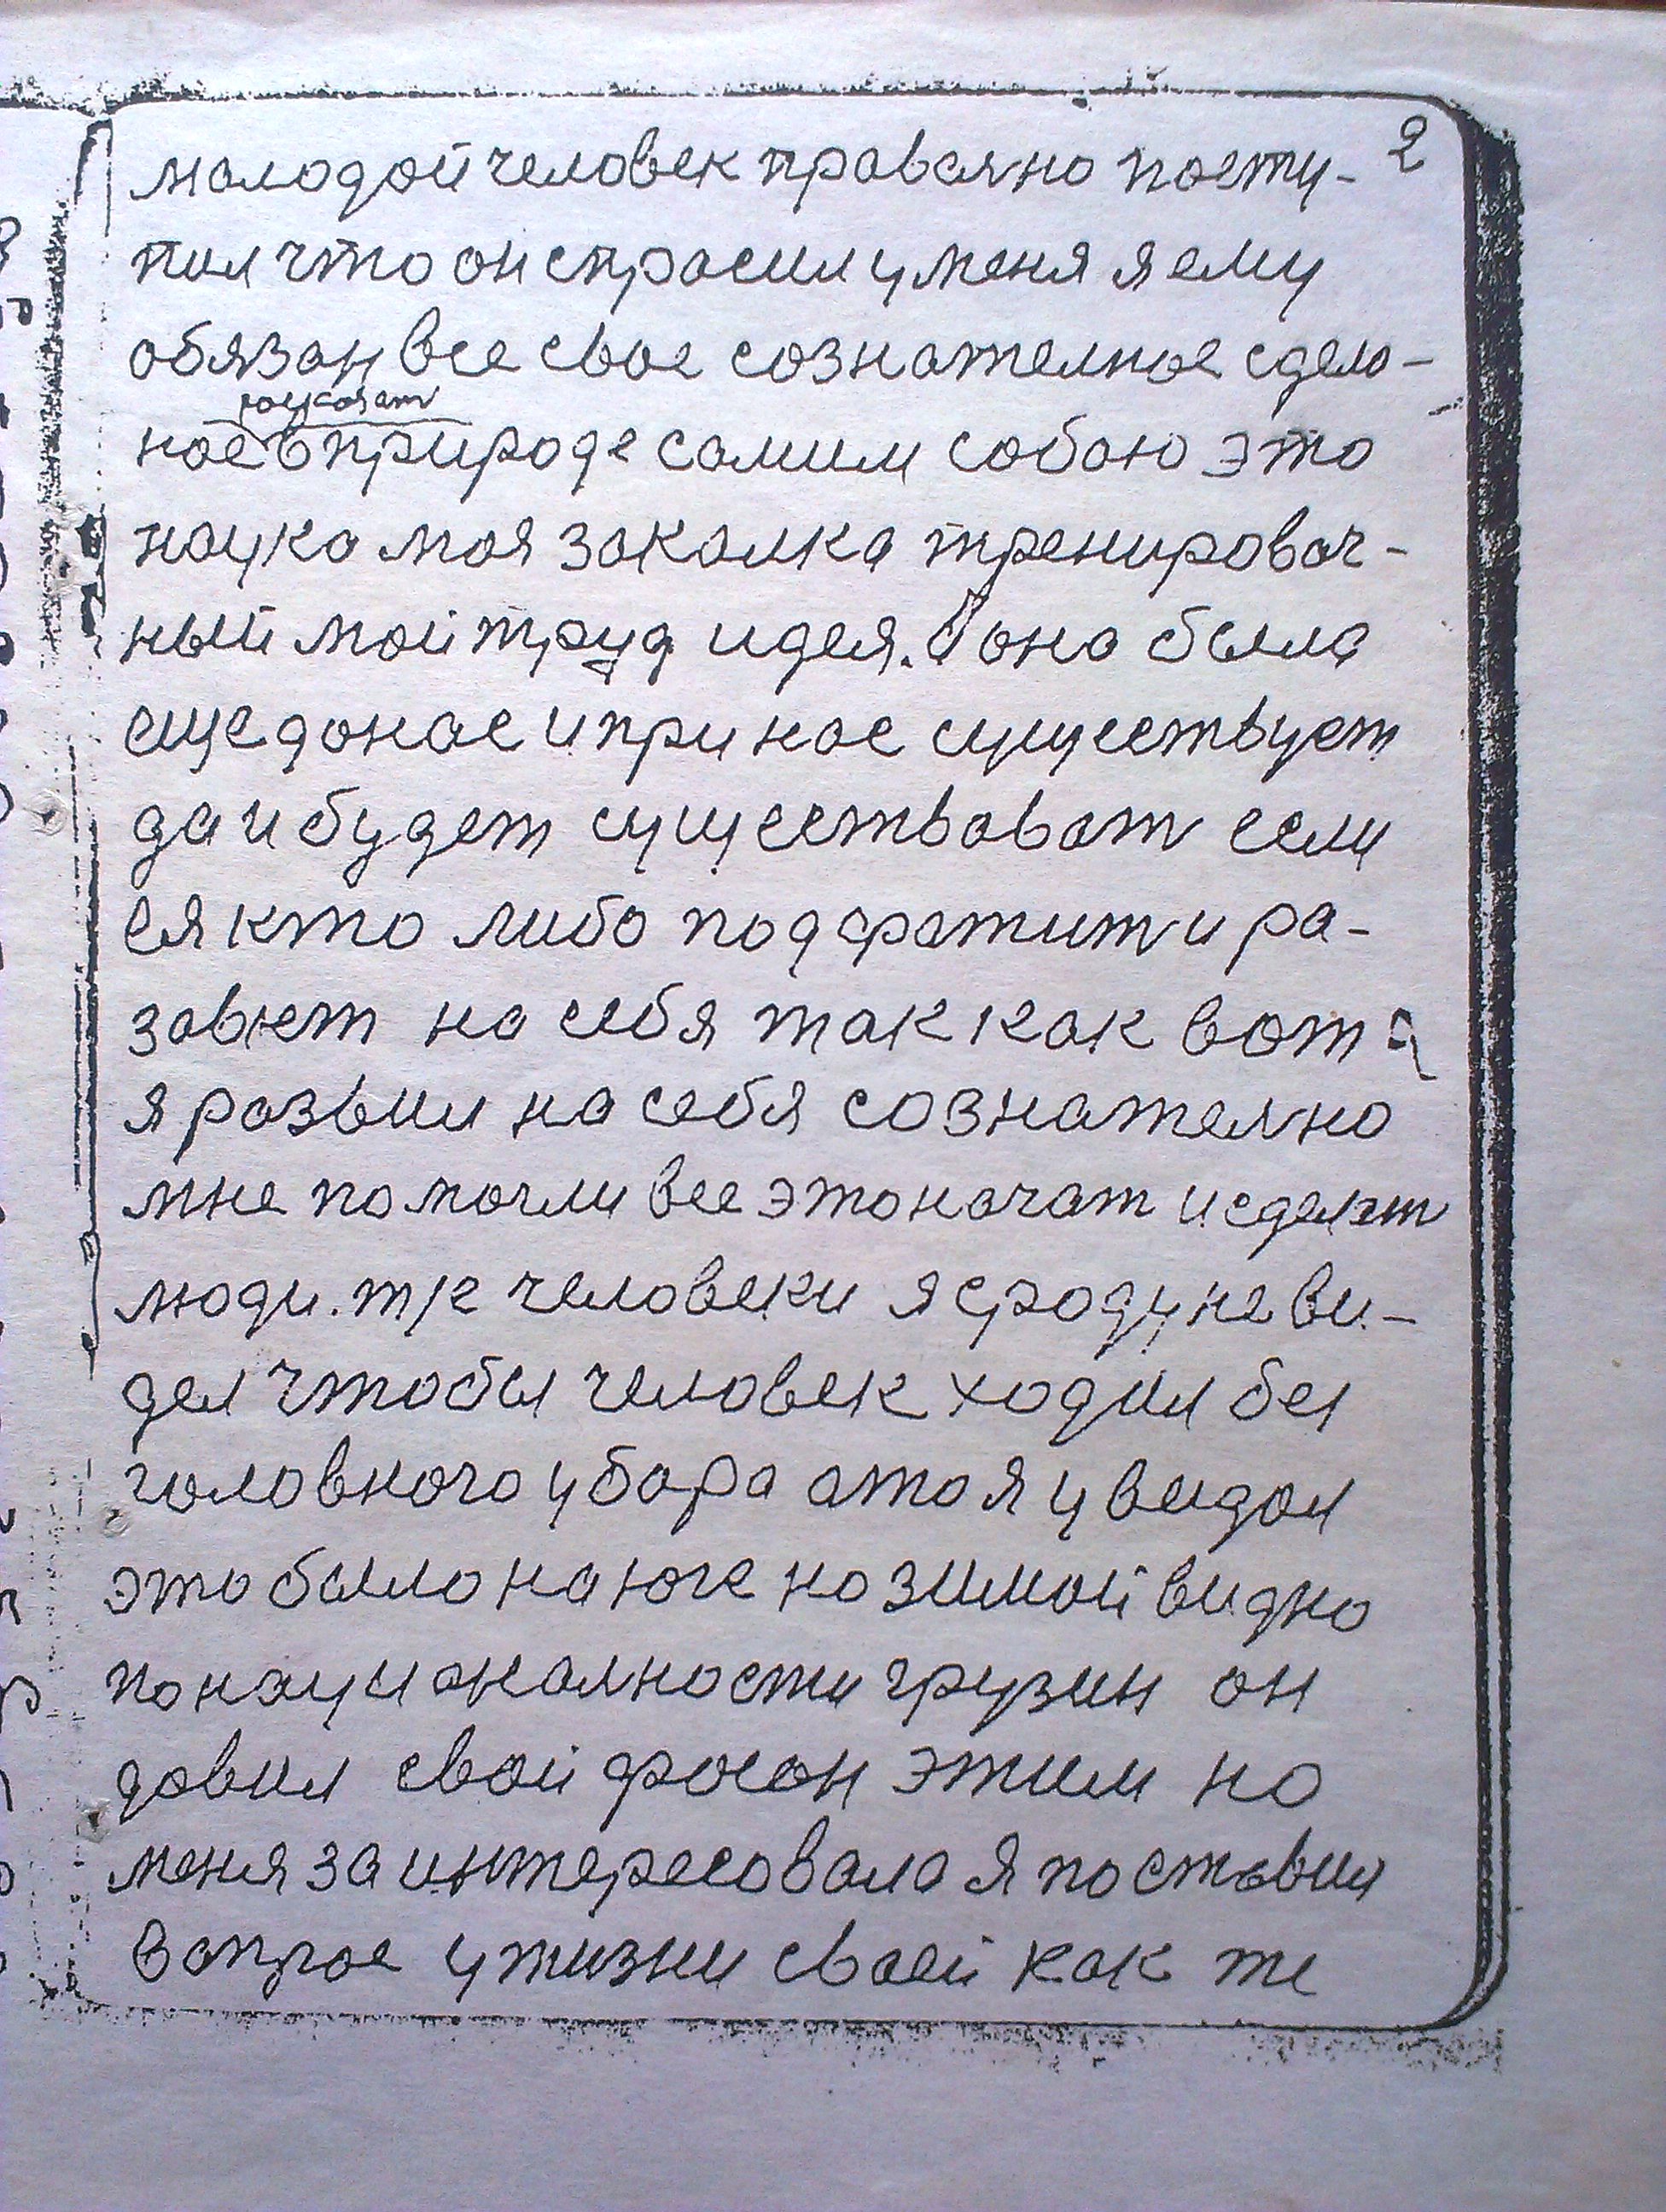 2
молодой человек правелно посту-
пил что он спросил у меня я ему
обязан все свое сознателное сдела-
расказат
ное в природе самим собою это
наука моя закалка тренировоч-
ный мой труд идея. Она была
еще до нас и при нас существует
да и будет существоват если
ея кто либо подфатит и ра-
завют на себя так как вот
я розвил на себя сознателно
мне помогли все это начат и сделат
люди. т/к человеки я сроду не ви-
дел чтобы человек ходил без
головного убора а то я увидал
это было на юге но зимой видно
по нацианалности грузин он
довил свой фосон этим но
меня заинтересовала я поставил
вопрос у жизни своей как же